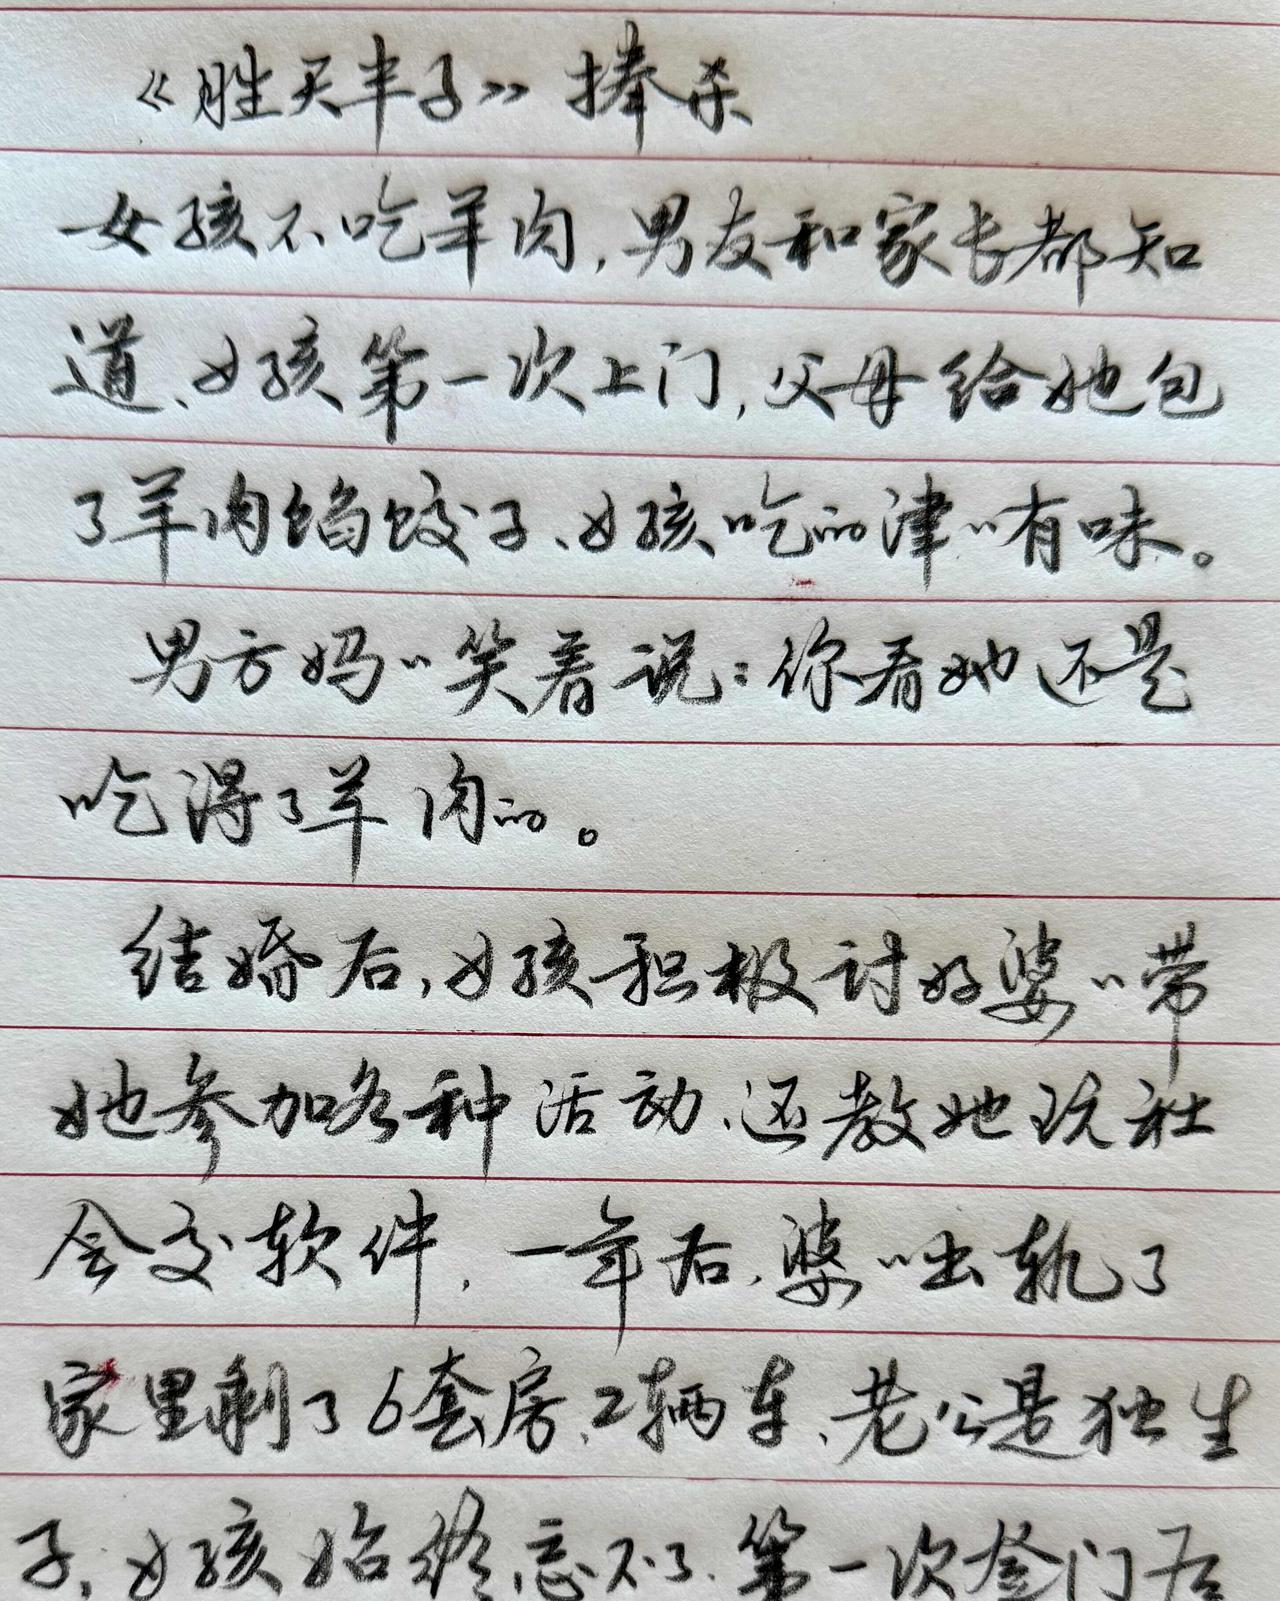 《胜天半子》捧杀
女孩不吃羊肉,男友和家长都知
道、女孩第一次上门,父母给她包
了羊肉馅饺子、女孩吃的津〃有味。
男方妈〃笑着说:你看她还是
吃得了羊肉的。
结婚后,女孩积极讨好婆〃带
她参加各种活动、还教她玩社
会交软件,一年后、婆〃出轨了
家里剩了6套房、2辆车、老公是独生
子、女孩始终忘不了、第一次登门